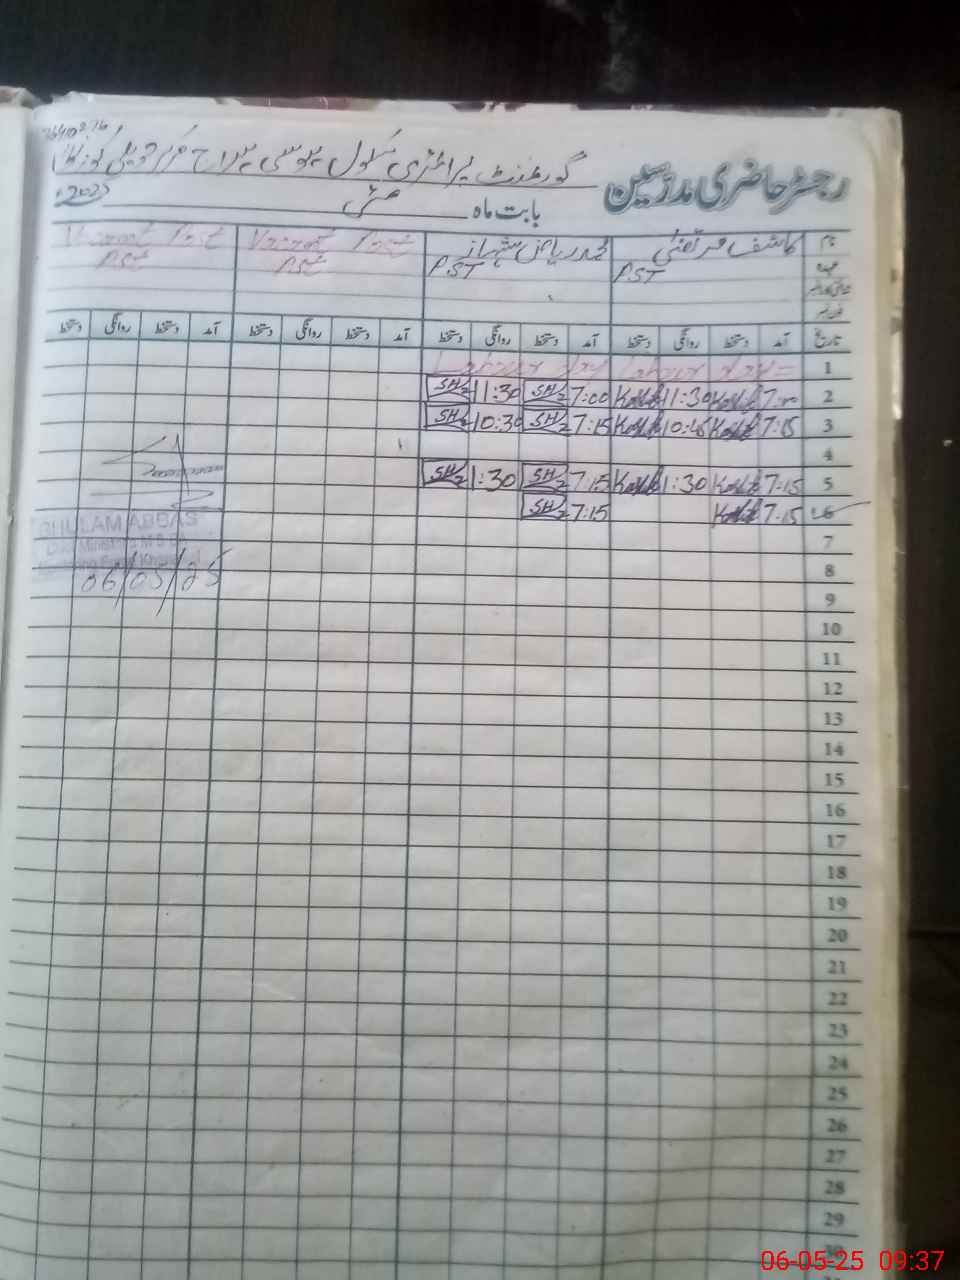 رجسٹر حاضری مدرسین
گورنمنٹ پرائمری سکول
بابت ماہ مئی 2025
نام کاشف مرتضیٰ محمد ریاض شہباز Vacant Post Vacant Post
عہدہ PST PST PST PST
تاریخ آمد دستخط روانگی دستخط آمد دستخط روانگی دستخط آمد دستخط روانگی دستخط آمد دستخط روانگی دستخط
1 Labour day Labour day
2 7:00 Kashif 11:30 Kashif 7:00 SH 11:30 SH
3 7:15 Kashif 10:45 Kashif 7:15 SH 10:30 SH
4
5 7:15 Kashif 1:30 Kashif 7:15 SH 1:30 SH
6 7:15 Kashif 7:15 SH
GHULAM ABBAS
06/05/25
7
8
9
10
11
12
13
14
15
16
17
18
19
20
21
22
23
24
25
26
27
28
29
30
06-05-25 09:37